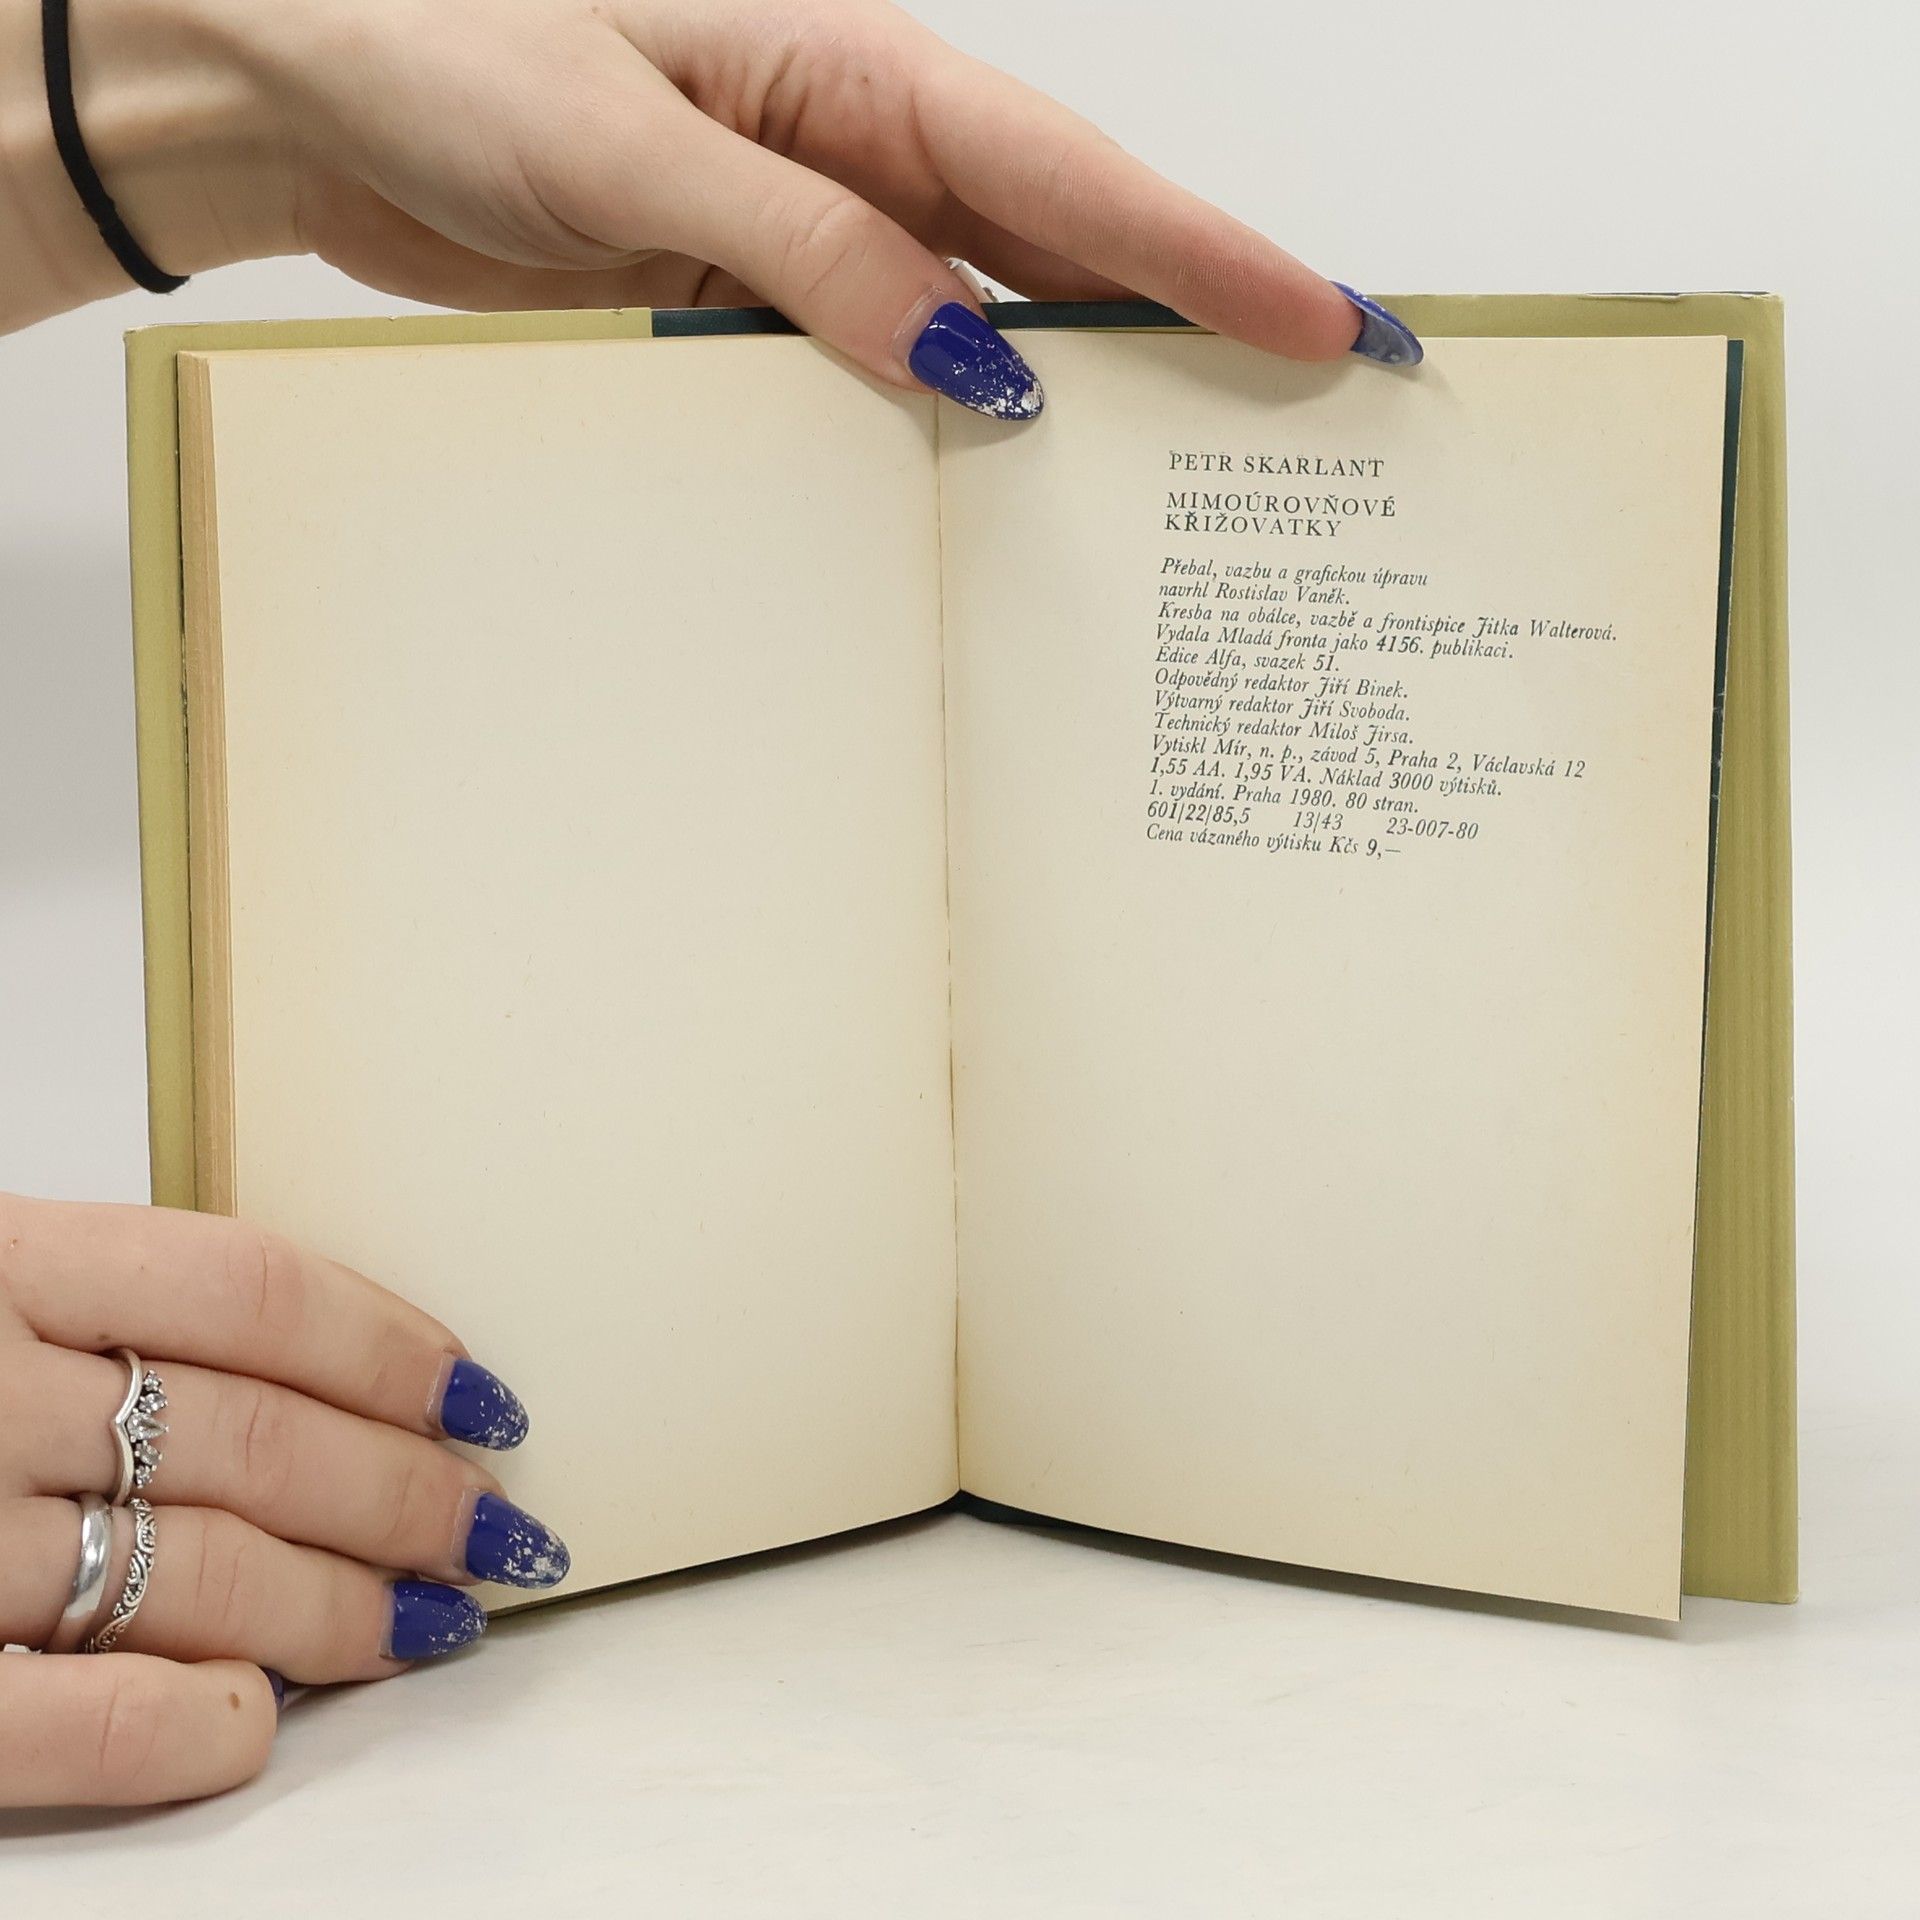 PETR SKARLANT
MIMOÚROVŇOVÉ
KŘIŽOVATKY
Přebal, vazbu a grafickou úpravu
navrhl Rostislav Vaněk.
Kresba na obálce, vazbě a frontispice Jitka Walterová.
Vydala Mladá fronta jako 4156. publikaci.
Edice Alfa, svazek 51.
Odpovědný redaktor Jiří Binek.
Výtvarný redaktor Jiří Svoboda.
Technický redaktor Miloš Jirsa.
Vytiskl Mír, n. p., závod 5, Praha 2, Václavská 12
1,55 AA. 1,95 VA. Náklad 3000 výtisků.
1. vydání. Praha 1980. 80 stran.
601/22/85,5 13/43 23-007-80
Cena vázaného výtisku Kčs 9,—